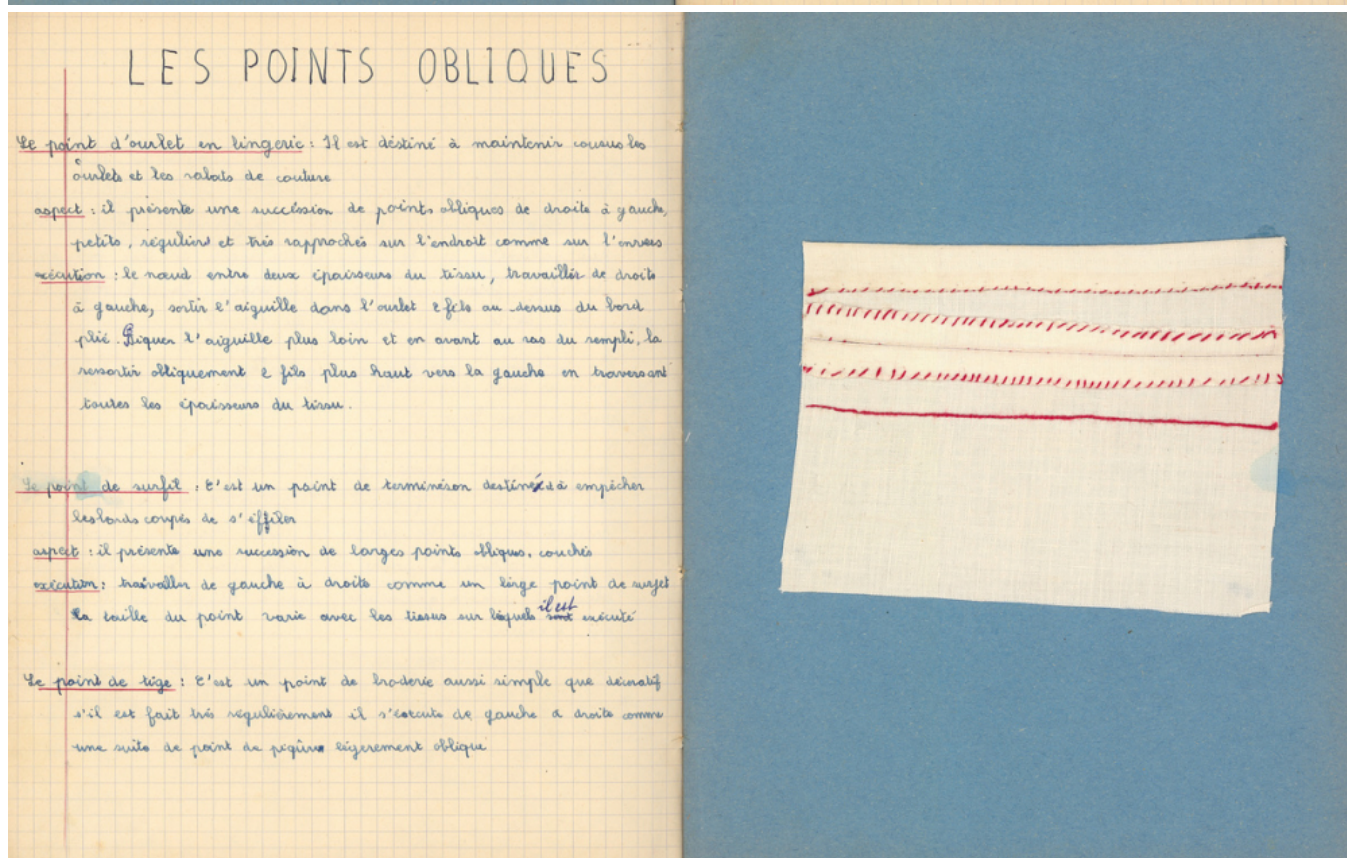 LES POINTS OBLIQUES
Le point d'ourlet en lingerie : Il est déstiné à maintenir cousus les
ourlets et les rabats de couture
aspect : il présente une succéssion de points obliques de droite à gauche,
petits, réguliers et très rapprochés sur l'endroit comme sur l'envers
exécution : le nœud entre deux épaisseurs du tissu, travailler de droite
à gauche, sortir l'aiguille dans l'ourlet 2 fils au dessus du bord
plié. Piquer l'aiguille plus loin et en avant au ras du rempli, la
ressortir obliquement 2 fils plus haut vers la gauche en traversant
toutes les épaisseurs du tissu.
Le point de surfil : C'est un point de terminéson destiné à empécher
les bords coupés de s'éffiler
aspect : il présente une succession de larges points obliques, couchés
exécution : travailler de gauche à droite comme un large point de surjet
la taille du point varie avec les tissus sur lèquels il est exécuté
Le point de tige : C'est un point de broderie aussi simple que décoratif
s'il est fait très régulièrement il s'éxécute de gauche à droite comme
une suite de point de piqûre légerement oblique